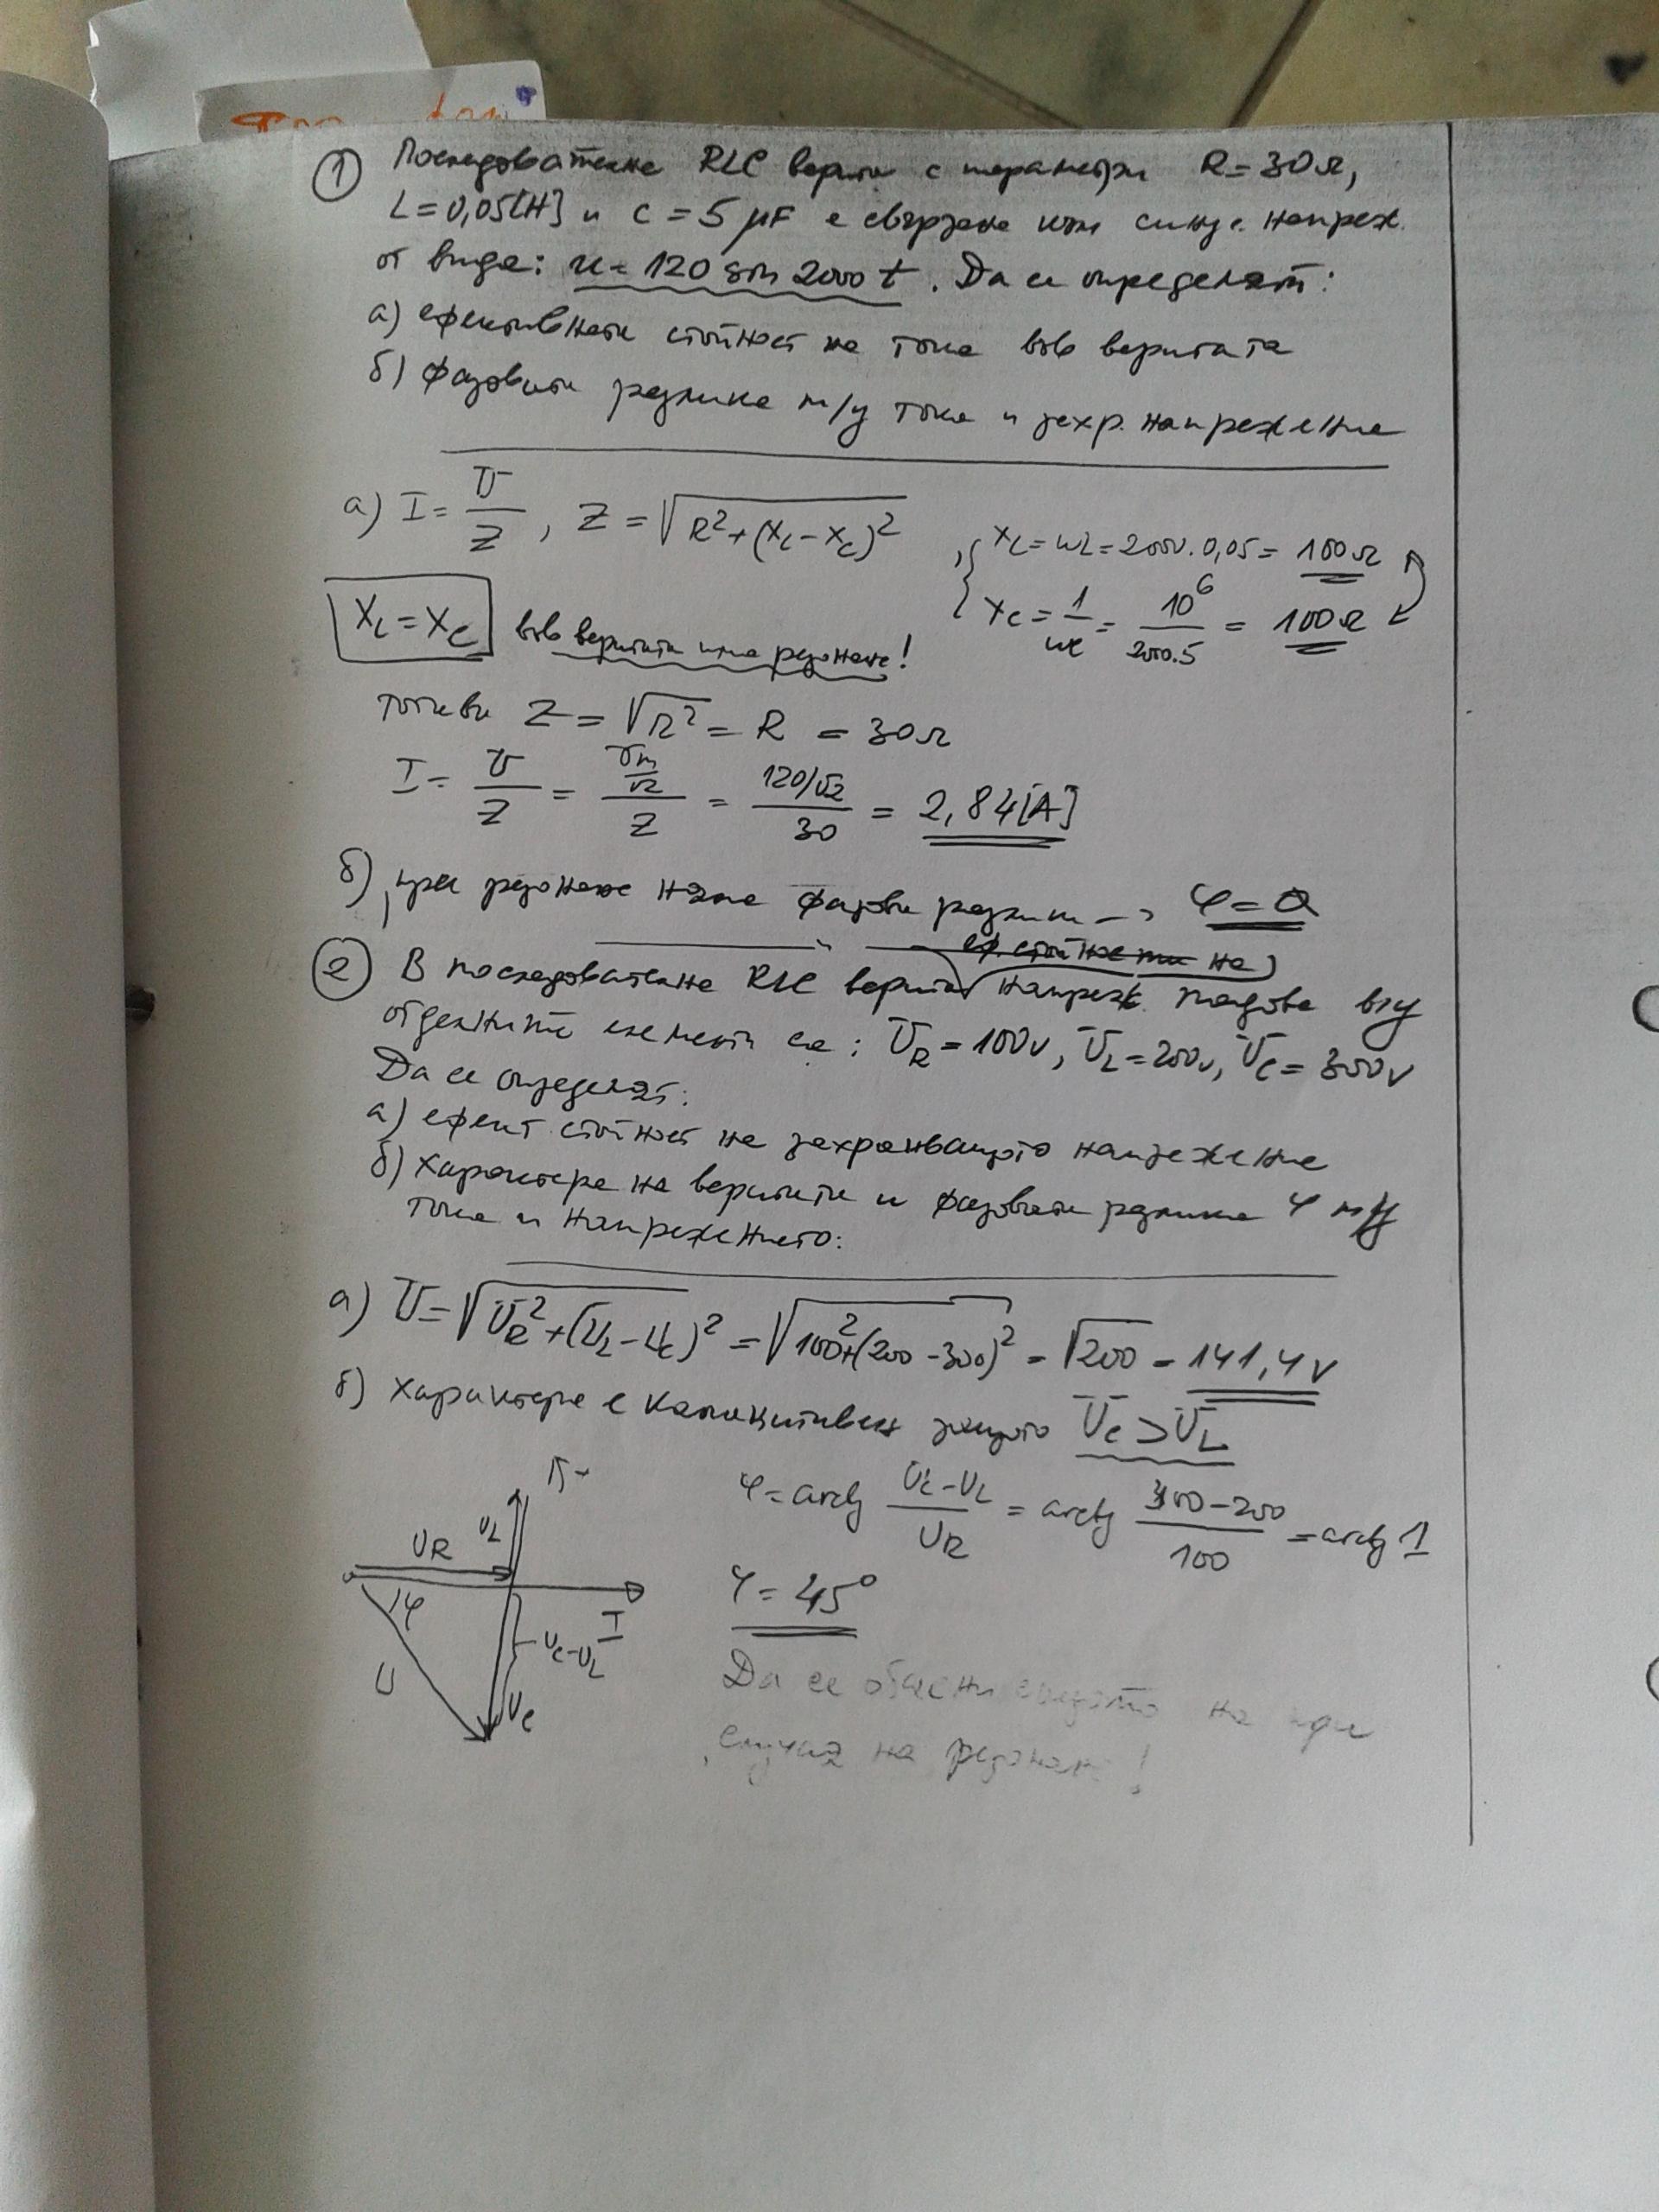 ① Последователна RLC верига с параметри R=30Ω,
L=0,05[H] и C=5 μF е свързана към синус. напреж.
от вида: u=120 sin 2000t. Да се определят:
а) ефективната стойност на тока във веригата
б) фазовата разлика м/у тока и захр. напрежение
а) I=U/Z, Z=√(R²+(X_L-X_C)²), { X_L=ωL=2000.0,05=100Ω
X_C=1/ωC=10⁶/2000.5=100Ω
X_L=X_C във веригата има резонанс!
тогава Z=√R²=R=30Ω
I=U/Z=(Um/√2)/Z=(120/√2)/30=2,84[A]
б) при резонанс няма фазова разлика → φ=0
② В последователна RLC верига напреж. падове в/у
отделните елементи са: U_R=100V, U_L=200V, U_C=300V
Да се определят:
а) ефект стойност на захранващото напрежение
б) характера на веригата и фазовата разлика φ м/у
тока и напрежението:
а) U=√(U_R²+(U_L-U_C)²)=√(100²+(200-300)²)=√200=141,4V
б) характера е капацитивен защото U_C>U_L
φ=arctg (U_C-U_L)/U_R=arctg (300-200)/100=arctg 1
φ=45°
U_R U_L
φ I
U_C-U_L
U U_C
Да се обясни на
случая на резонанс!